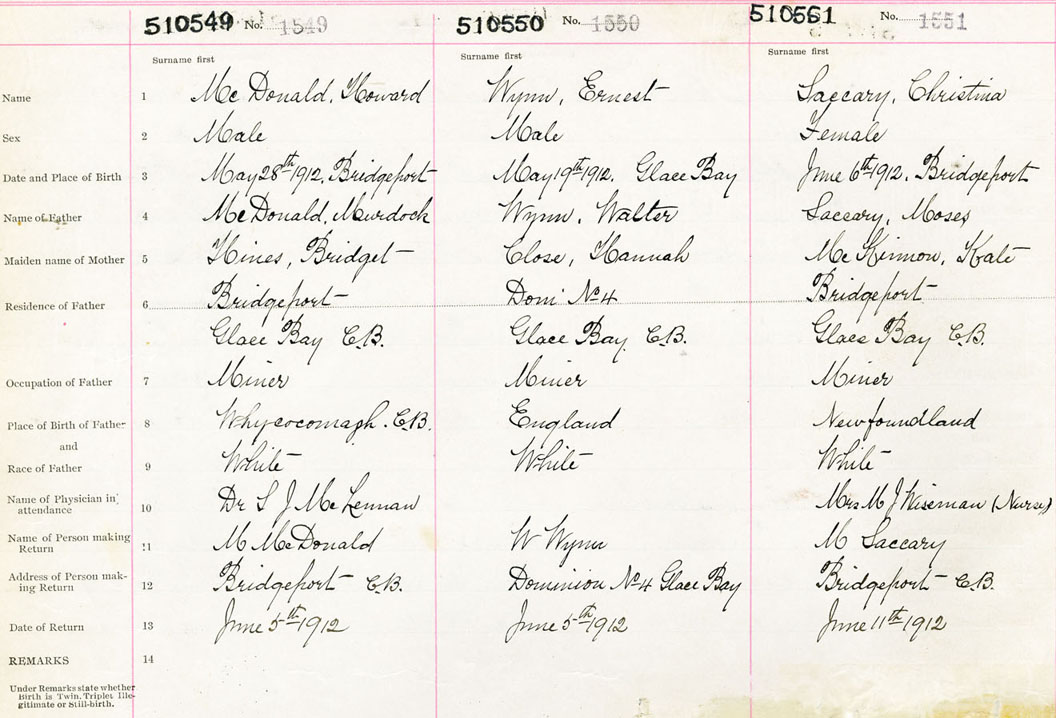 510549 No. 1549 510550 No. 1550 510551 No. 1551
Surname first Surname first Surname first
Name 1 Mc Donald, Howard Wynn, Ernest Saccary, Christina
Sex 2 Male Male Female
Date and Place of Birth 3 May 28th 1912, Bridgeport May 19th 1912, Glace Bay June 6th 1912, Bridgeport
Name of Father 4 Mc Donald, Murdock Wynn, Walter Saccary, Moses
Maiden name of Mother 5 Hines, Bridget Close, Hannah Mc Kinnon, Kate
Residence of Father 6 Bridgeport Dom' No 4 Bridgeport
Glace Bay C.B. Glace Bay C.B. Glace Bay C.B.
Occupation of Father 7 Miner Miner Miner
Place of Birth of Father 8 Whycocomagh. C.B. England Newfoundland
and
Race of Father 9 White White White
Name of Physician in attendance 10 Dr S J Mc Lennan Mrs M J Wiseman (Nurse)
Name of Person making Return 11 M McDonald W Wynn M Saccary
Address of Person mak-ing Return 12 Bridgeport C.B. Dominion No 4 Glace Bay Bridgeport C.B.
Date of Return 13 June 5th 1912 June 5th 1912 June 11th 1912
REMARKS 14
Under Remarks state whether
Birth is Twin, Triplet Ille-
gitimate or Still-birth.